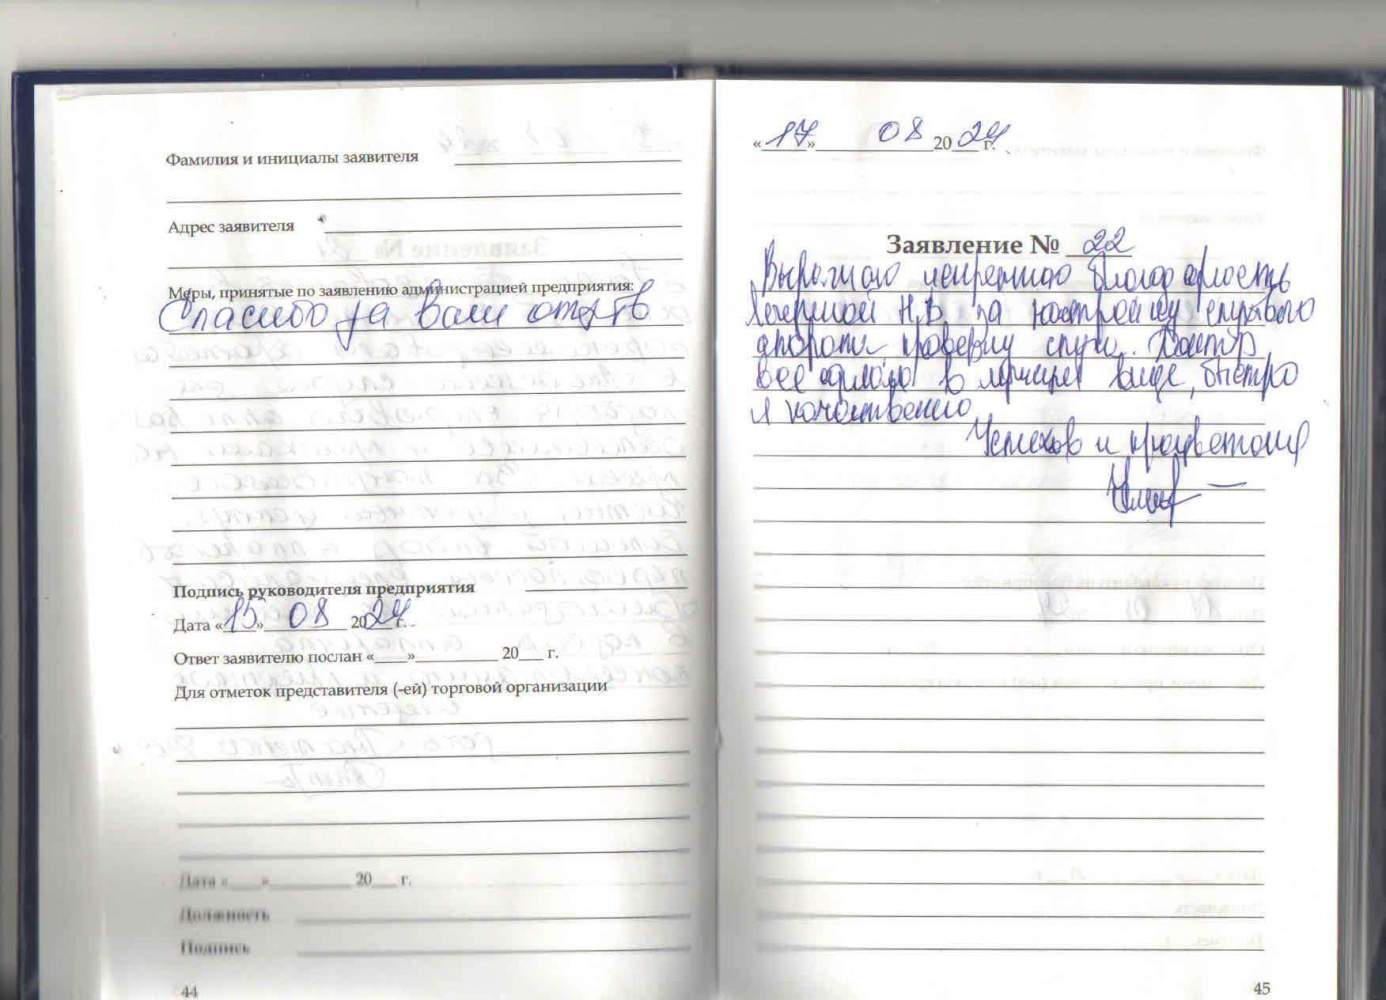 Фамилия и инициалы заявителя
Адрес заявителя
Меры, принятые по заявлению администрацией предприятия:
Спасибо за Ваш отзыв
Подпись руководителя предприятия
Дата «15» 08 2024 г.
Ответ заявителю послан «____»__________ 20___ г.
Для отметок представителя (-ей) торговой организации
Дата «____»__________ 20___ г.
Должность
Подпись
44
«17» 08 2024 г.
Заявление № 22
Выражаю искреннюю благодарность
Н.В. за настройку слухового
аппарата, проверку слуха. Доктор
все сделала в лучшем виде, быстро
и качественно
Успехов и процветания
45